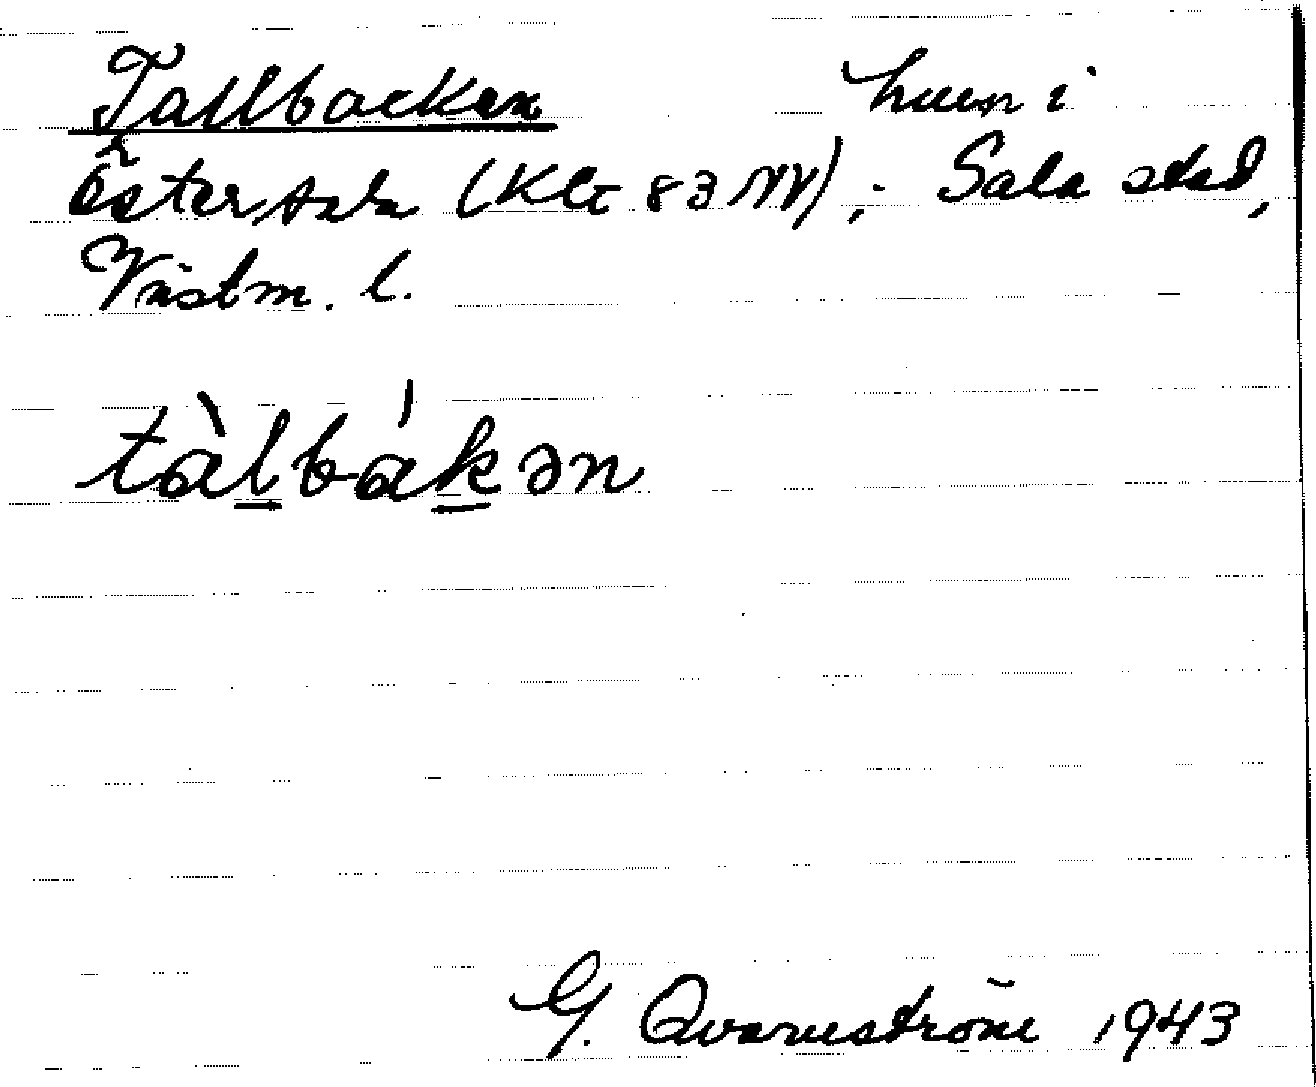 Tallbacken husn i
Östersala (Kbl 83 NV); Sala stad,
Västm. l.
tàlbákən
G. Qvarnström 1943